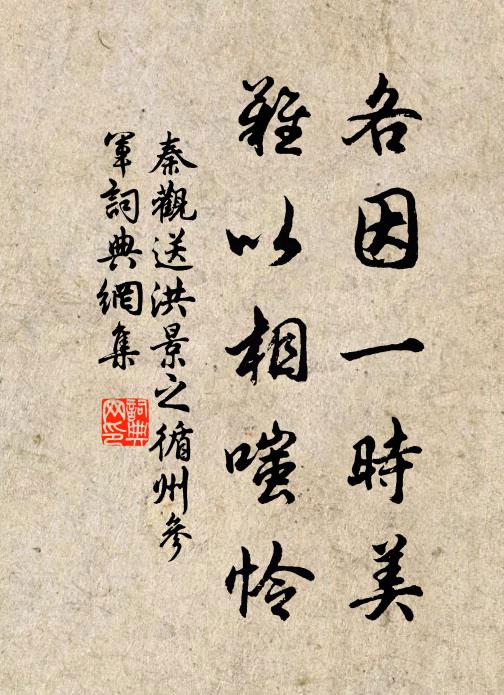 各因一時美
難以相嗤憐
秦觀送洪景之循州參
軍詞典網集
詞典
网印